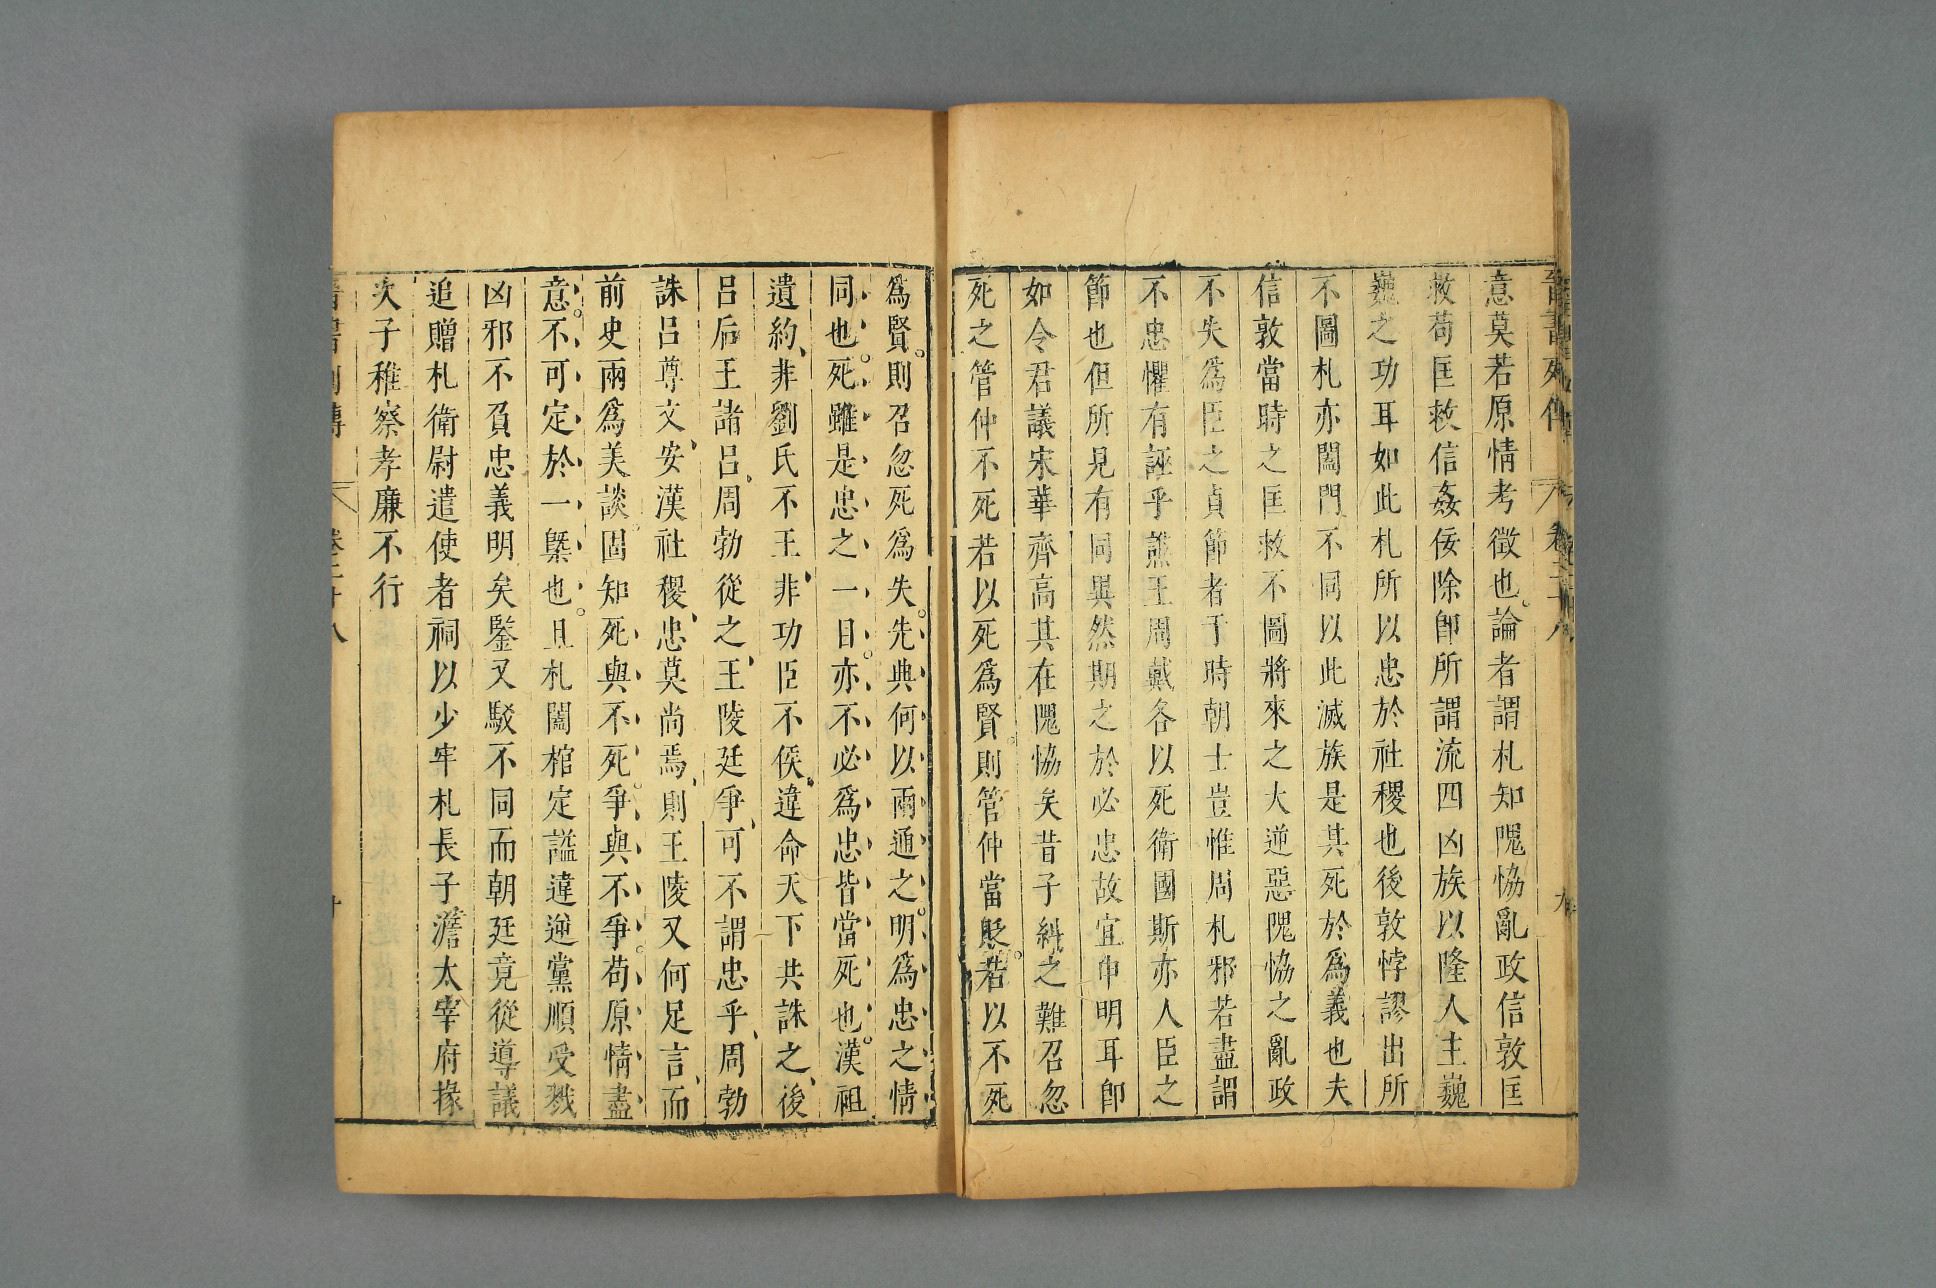 晉書列傳 卷二十八 九
意莫若原情考徵也。論者謂札知隗恊亂政信敦匡
救苟匡救信姦佞除卽所謂流四凶族以隆人主巍
巍之功耳如此札所以忠於社稷也後敦悖謬出所
不圖札亦闔門不同以此滅族是其死於爲義也夫
信敦當時之匡救不圖將來之大逆惡隗恊之亂政
不失爲臣之貞節者于時朝士豈惟周札邪若盡謂
不忠懼有誣乎譙王周戴各以死衛國斯亦人臣之
節也但所見有同異然期之於必忠故宜申明耳卽
如令君議宋華齊高其在隗恊矣昔子糾之難召忽
死之管仲不死若以死爲賢。則管仲當貶。若以不死
爲賢。則召忽死爲失。先典何以兩通之。明爲忠之情
同也。死雖是忠之一目。亦不必爲忠皆當死也。漢祖
遺約、非劉氏不王、非功臣不侯、違命天下共誅之、後
呂后王諸呂、周勃從之、王陵廷爭、可不謂忠乎、周勃
誅呂尊文、安漢社稷、忠莫尚焉、則王陵又何足言、而
前史兩爲美談。固知死與不死。爭與不爭。苟原情盡
意。不可定於一槩也。且札闔棺定諡違逆黨順受戮
凶邪不負忠義明矣鑒又駁不同而朝廷竟從導議
追贈札衛尉遣使者祠以少牢札長子澹太宰府掾
次子稚察孝廉不行
晉書列傳 卷二十八 十